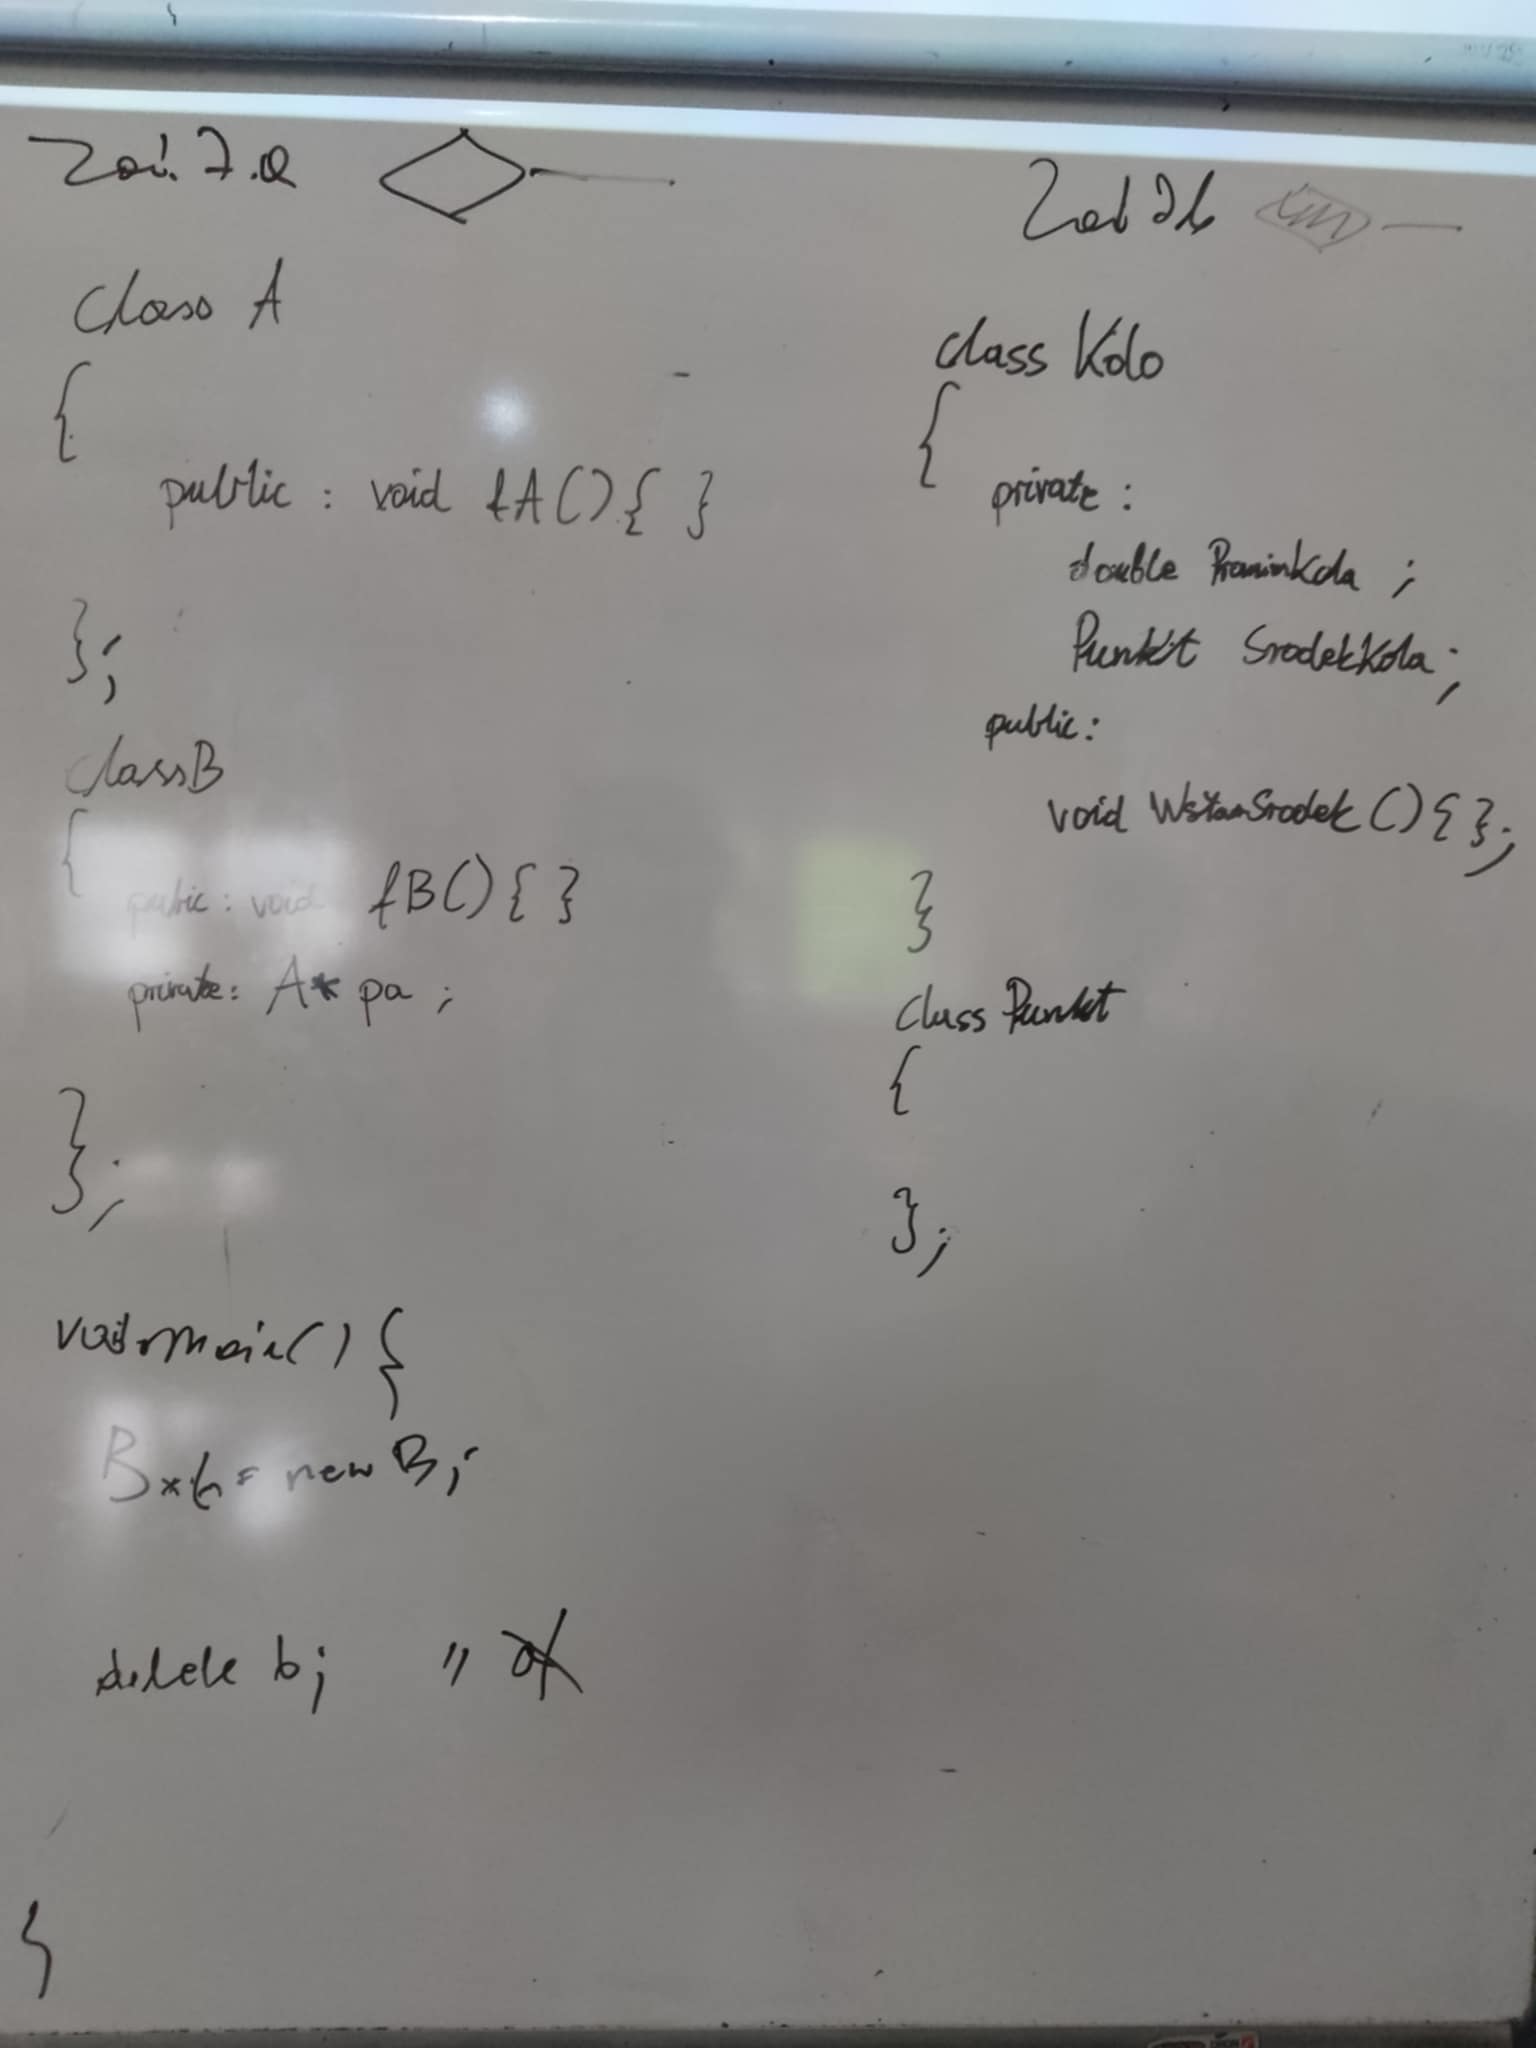 Zad. 7.a
class A
{
public : void fA(){ }
};
class B
{
public : void fB(){ }
private: A* pa ;
};
void main() {
B*b = new B;
delete b; //
}
Zad 7b
class Kolo
{
private :
double PromienKola ;
Punkt SrodekKola;
public:
void WstawSrodek (){ };
}
class Punkt
{
};